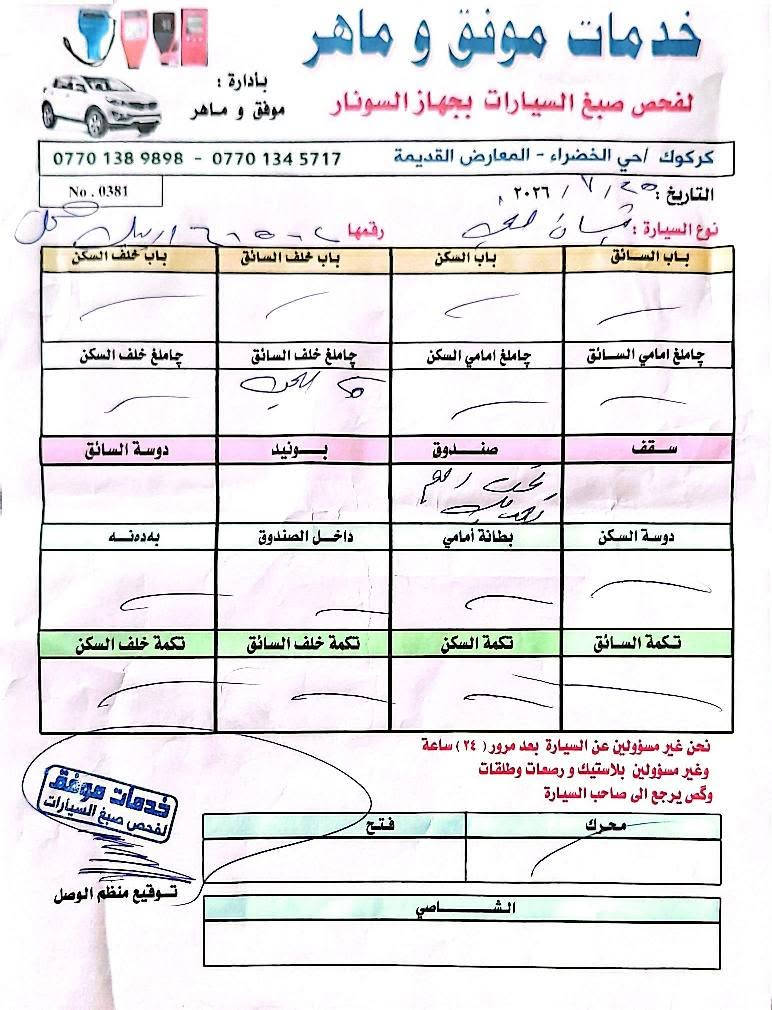 خدمات موفق و ماهر
بأدارة :
موفق و ماهر
لفحص صبغ السيارات بجهاز السونار
كركوك /حي الخضراء - المعارض القديمة
0770 134 5717 - 0770 138 9898
No . 0381
التاريخ : ٢٥ / ٧ / ٢٠٢٦
نوع السيارة : نيسان
رقمها
باب السائق
باب السكن
باب خلف السائق
باب خلف السكن
چاملغ امامي السائق
چاملغ امامي السكن
چاملغ خلف السائق
چاملغ خلف السكن
سقف
صندوق
بونيد
دوسة السائق
تحت رحمة
دوسة السكن
بطانة أمامي
داخل الصندوق
بەدەنە
تكمة السائق
تكمة السكن
تكمة خلف السائق
تكمة خلف السكن
نحن غير مسؤولين عن السيارة بعد مرور ( ٢٤ ) ساعة
وغير مسؤولين بلاستيك و رصعات وطلقات
وگص يرجع الى صاحب السيارة
خدمات موفق
لفحص صبغ السيارات
توقيع منظم الوصل
محرك
فتح
الشاصي